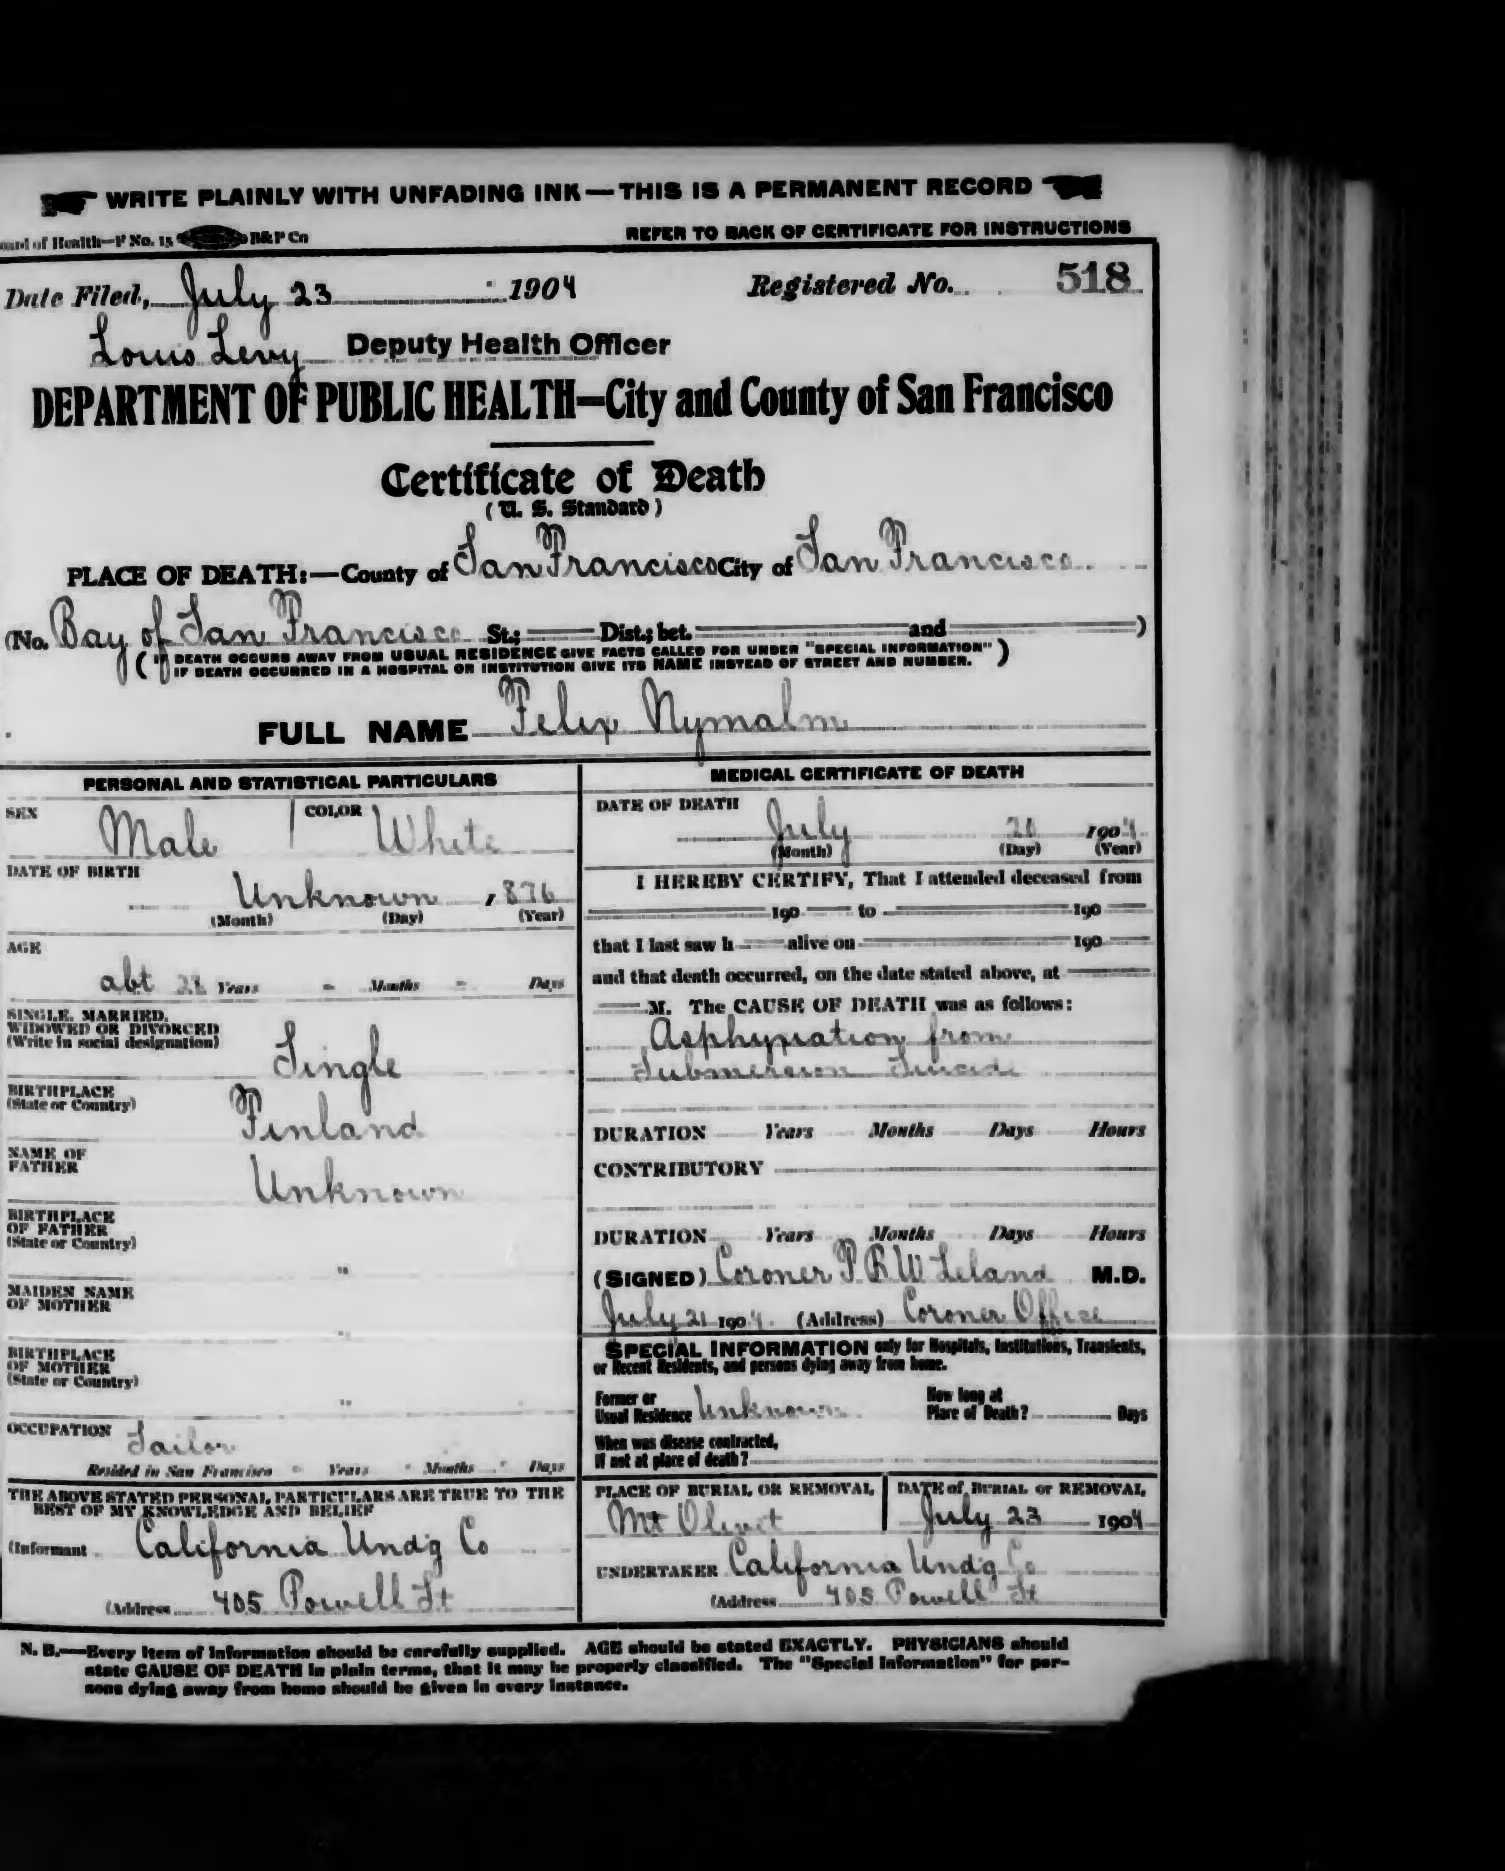 WRITE PLAINLY WITH UNFADING INK—THIS IS A PERMANENT RECORD
oard of Health—F No. 15 B&P Co
REFER TO BACK OF CERTIFICATE FOR INSTRUCTIONS
Date Filed, July 23 1904 Registered No. 518
Louis Levy Deputy Health Officer
DEPARTMENT OF PUBLIC HEALTH—City and County of San Francisco
Certificate of Death
(U. S. Standard)
PLACE OF DEATH:—County of San Francisco City of San Francisco
(No. Bay of San Francisco St.; Dist.; bet. and )
( IF DEATH OCCURS AWAY FROM USUAL RESIDENCE GIVE FACTS CALLED FOR UNDER "SPECIAL INFORMATION" )
IF DEATH OCCURRED IN A HOSPITAL OR INSTITUTION GIVE ITS NAME INSTEAD OF STREET AND NUMBER.
FULL NAME Felix Nymalm
PERSONAL AND STATISTICAL PARTICULARS
SEX Male COLOR White
DATE OF BIRTH
Unknown , 1876
(Month) (Day) (Year)
AGE
abt 28 Years " Months " Days
SINGLE, MARRIED,
WIDOWED OR DIVORCED
(Write in social designation)
Single
BIRTHPLACE
(State or Country)
Finland
NAME OF
FATHER
Unknown
BIRTHPLACE
OF FATHER
(State or Country)
"
MAIDEN NAME
OF MOTHER
"
BIRTHPLACE
OF MOTHER
(State or Country)
"
OCCUPATION Tailor
Resided in San Francisco " Years " Months " Days
THE ABOVE STATED PERSONAL PARTICULARS ARE TRUE TO THE
BEST OF MY KNOWLEDGE AND BELIEF
(Informant California Undg Co
(Address 405 Powell St
MEDICAL CERTIFICATE OF DEATH
DATE OF DEATH
July 20 1904
(Month) (Day) (Year)
I HEREBY CERTIFY, That I attended deceased from
190 to 190
that I last saw h alive on 190
and that death occurred, on the date stated above, at
M. The CAUSE OF DEATH was as follows:
Asphyxiation from
Submersion Suicide
DURATION Years Months Days Hours
CONTRIBUTORY
DURATION Years Months Days Hours
(SIGNED) Coroner T B W Leland M.D.
July 21 1904. (Address) Coroner Office
SPECIAL INFORMATION only for Hospitals, Institutions, Transients,
or Recent Residents, and persons dying away from home.
Former or
Usual Residence Unknown
How long at
Place of Death? Days
When was disease contracted,
If not at place of death?
PLACE OF BURIAL OR REMOVAL
Mt Olivet
DATE of BURIAL or REMOVAL
July 23 1904
UNDERTAKER California Undg Co
(Address 405 Powell St
N. B.—Every item of information should be carefully supplied. AGE should be stated EXACTLY. PHYSICIANS should
state CAUSE OF DEATH in plain terms, that it may be properly classified. The "Special Information" for per-
sons dying away from home should be given in every instance.